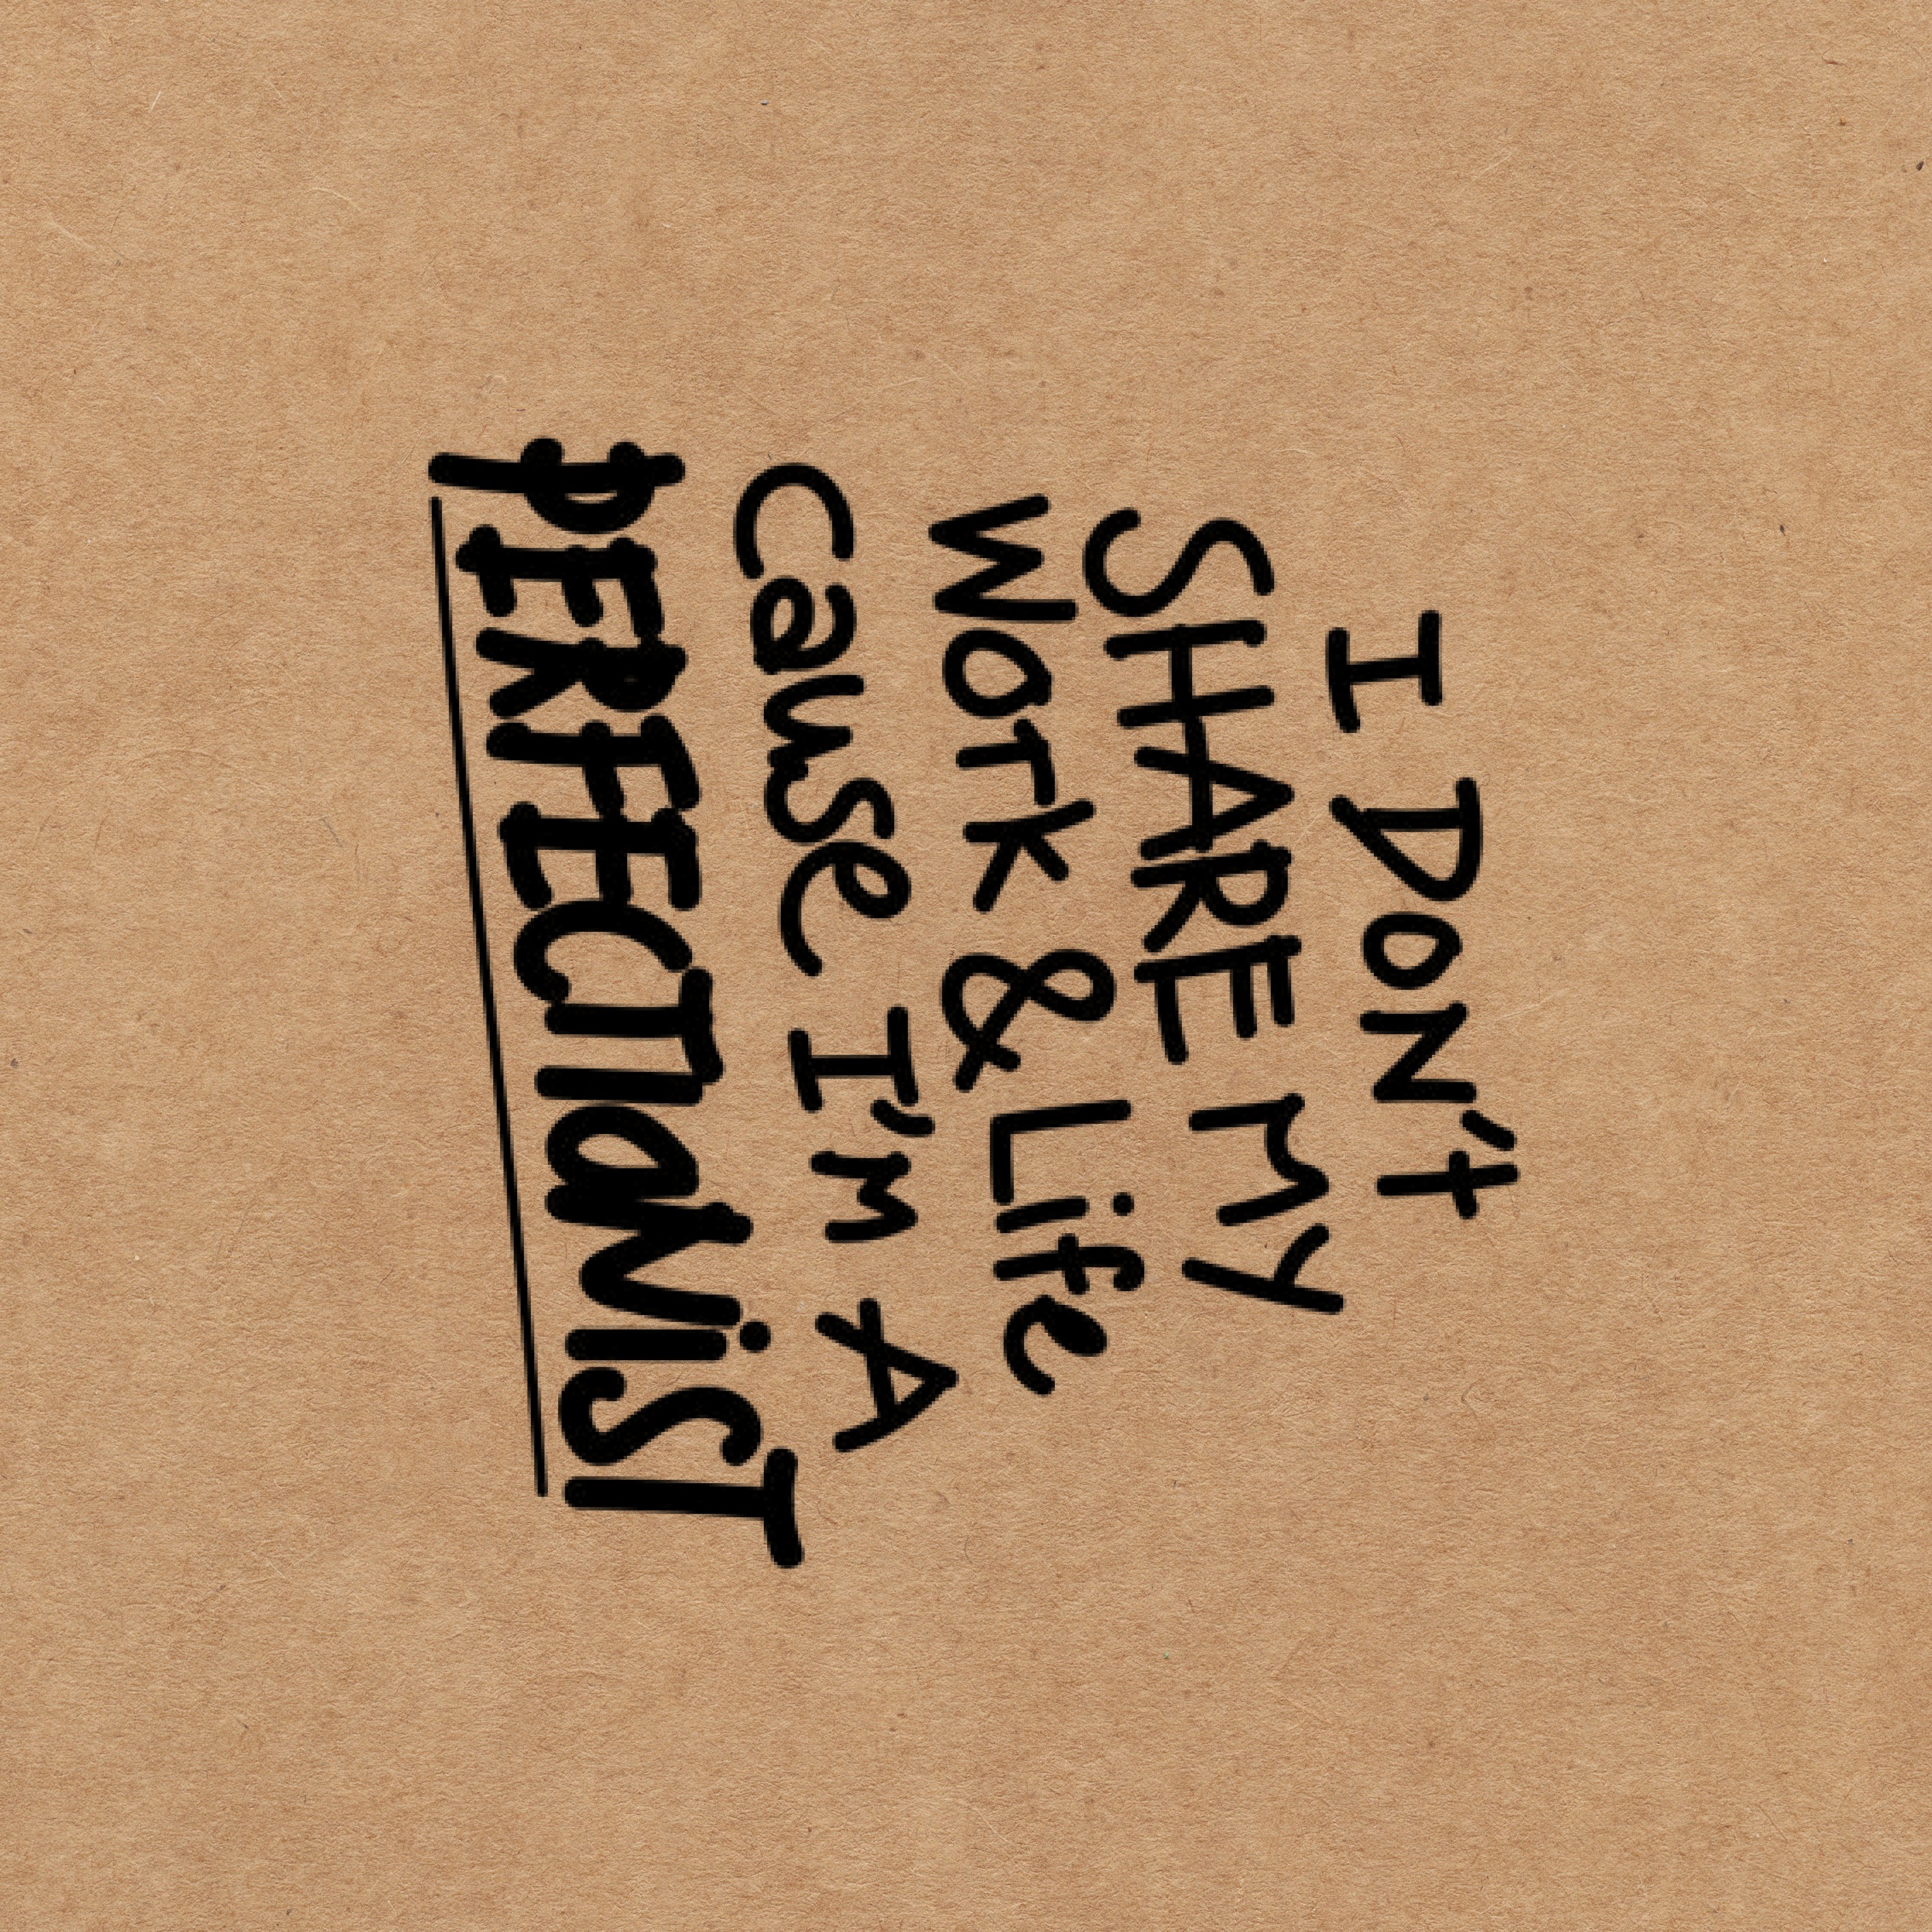 I DON't
SHARE MY
Work & Life
cause I'm A
PERFECTIONiST